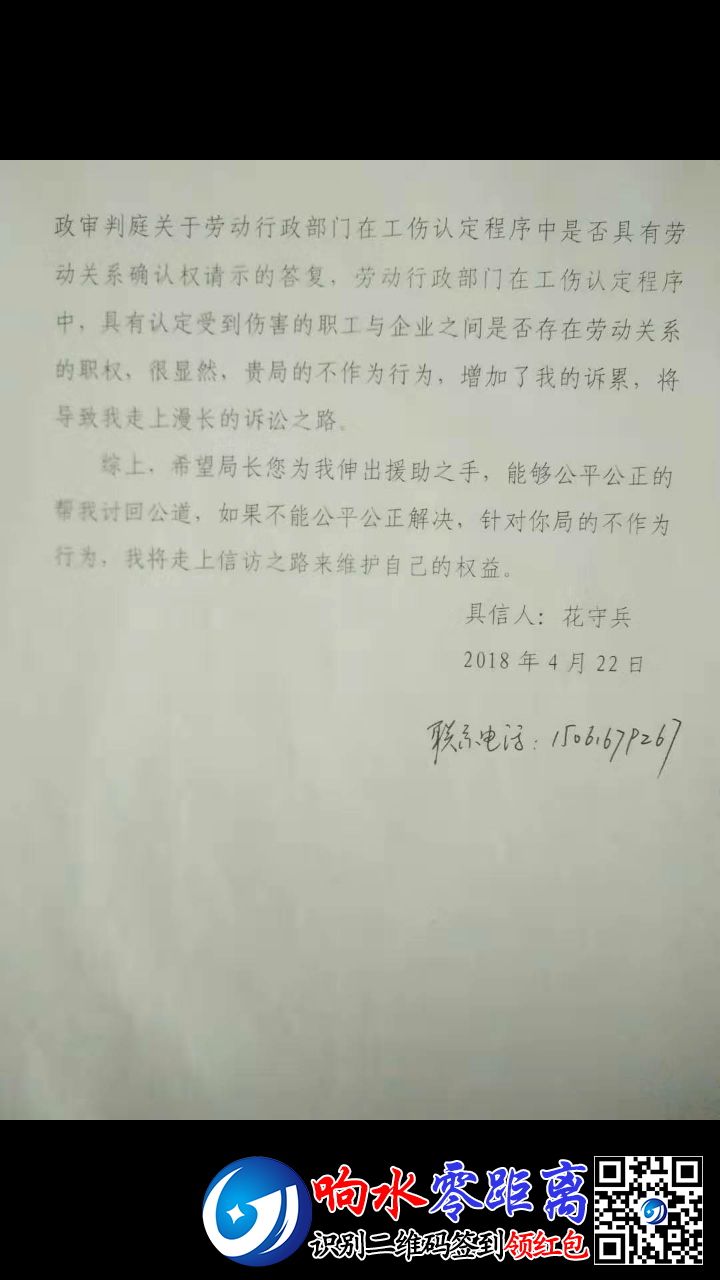 政审判庭关于劳动行政部门在工伤认定程序中是否具有劳
动关系确认权请示的答复，劳动行政部门在工伤认定程序
中，具有认定受到伤害的职工与企业之间是否存在劳动关系
的职权，很显然，贵局的不作为行为，增加了我的诉累，将
导致我走上漫长的诉讼之路。
综上，希望局长您为我伸出援助之手，能够公平公正的
帮我讨回公道，如果不能公平公正解决，针对你局的不作为
行为，我将走上信访之路来维护自己的权益。
具信人：花守兵
2018 年 4 月 22 日
联系电话：15061679267
响水零距离
识别二维码签到领红包